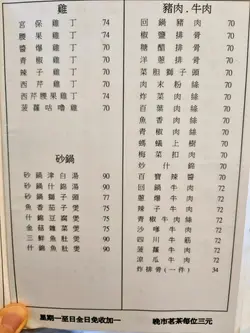 雞
宮保雞丁 70
腰果雞丁 74
醬爆雞丁 70
青椒雞丁 70
辣子雞丁 70
西芹雞丁 70
西芹腰果雞丁 74
菠蘿咕嚕雞 70
砂鍋
砂鍋津白湯 50
砂鍋什錦湯 90
砂鍋獅子頭 70
魚香茄子煲 75
什錦豆腐煲 75
金菇雞煲 75
三鮮魚肚煲 90
什錦魚肚煲 90
豬肉.牛肉
回鍋豬肉 70
椒鹽排骨 70
糖醋排骨 70
洋蔥排骨 70
菜柤獅子頭 70
肉末粉絲 70
炸菜肉絲 70
百葉肉絲 70
魚香肉絲 70
青椒肉絲 70
螞蟻上樹 70
梅菜扣肉 70
炒什錦 70
百寶辣醬 70
回鍋牛肉 72
蔥爆牛肉 72
辣子牛肉 72
青椒牛肉絲 72
沙爹牛肉 72
四川牛筋 72
菠蘿牛肉 72
涼瓜牛肉 72
炸排骨(一件) 34
星期一至日全日免收加一
晚市茗茶每位三元